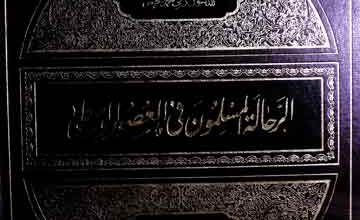 الرحالة المسلمون في العصور الوسطى